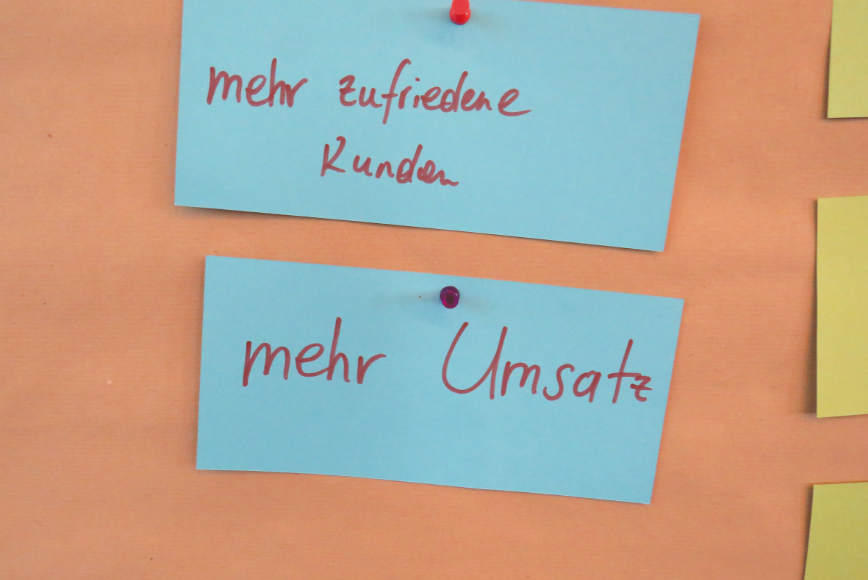 mehr zufriedene
Kunden
mehr Umsatz